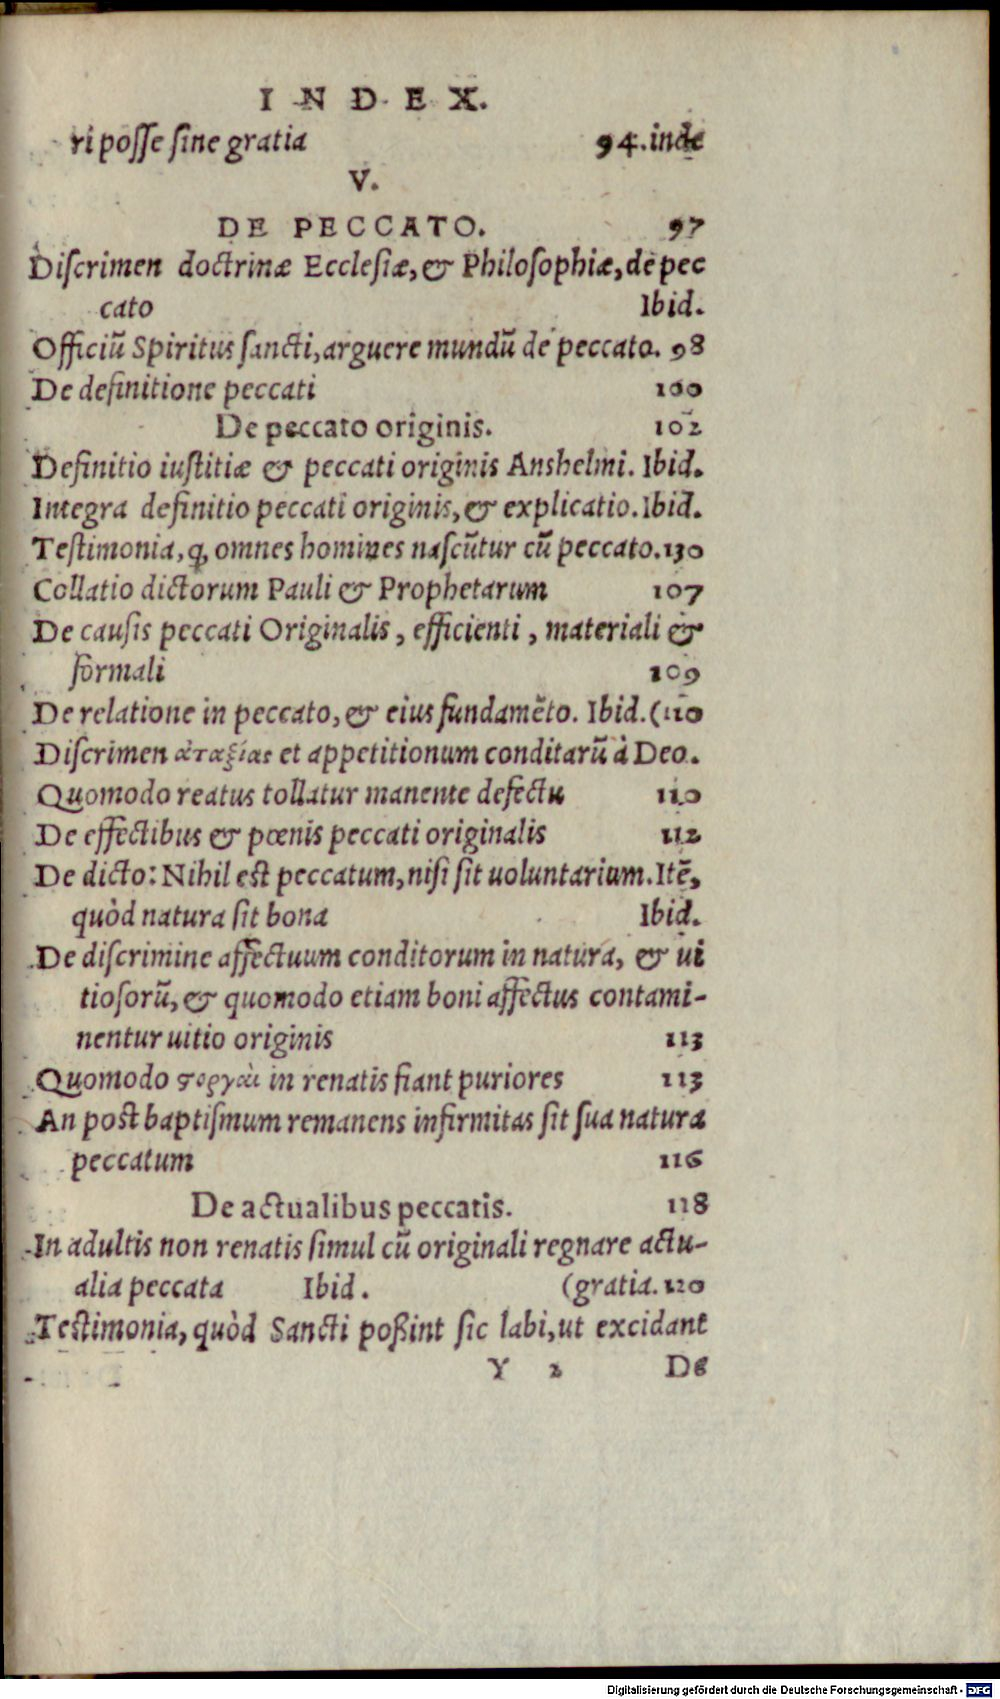 INDEX.
ri posse sine gratia 94.inde
V.
DE PECCATO. 97
Discrimen doctrinæ Ecclesiæ, & Philosophiæ, de pec
cato Ibid.
Officiũ Spiritus sancti, arguere mundũ de peccato. 98
De definitione peccati 100
De peccato originis. 102
Definitio iustitiæ & peccati originis Anshelmi. Ibid.
Integra definitio peccati originis, & explicatio. Ibid.
Testimonia, q, omnes homines nascũtur cũ peccato. 130
Collatio dictorum Pauli & Prophetarum 107
De causis peccati Originalis, efficienti, materiali &
formali 109
De relatione in peccato, & eius fundamẽto. Ibid. (110
Discrimen ἀταξίας et appetitionum conditarũ à Deo.
Quomodo reatus tollatur manente defectu 110
De effectibus & pœnis peccati originalis 112
De dicto: Nihil est peccatum, nisi sit uoluntarium. Itẽ,
quòd natura sit bona Ibid.
De discrimine affectuum conditorum in natura, & ui
tiosorũ, & quomodo etiam boni affectus contami-
nentur uitio originis 113
Quomodo ςοργαὶ in renatis fiant puriores 113
An post baptismum remanens infirmitas sit sua natura
peccatum 116
De actualibus peccatis. 118
In adultis non renatis simul cũ originali regnare actu-
alia peccata Ibid. (gratia. 120
Testimonia, quòd Sancti poßint sic labi, ut excidant
Y 2 De
Digitalisierung gefördert durch die Deutsche Forschungsgemeinschaft - DFG